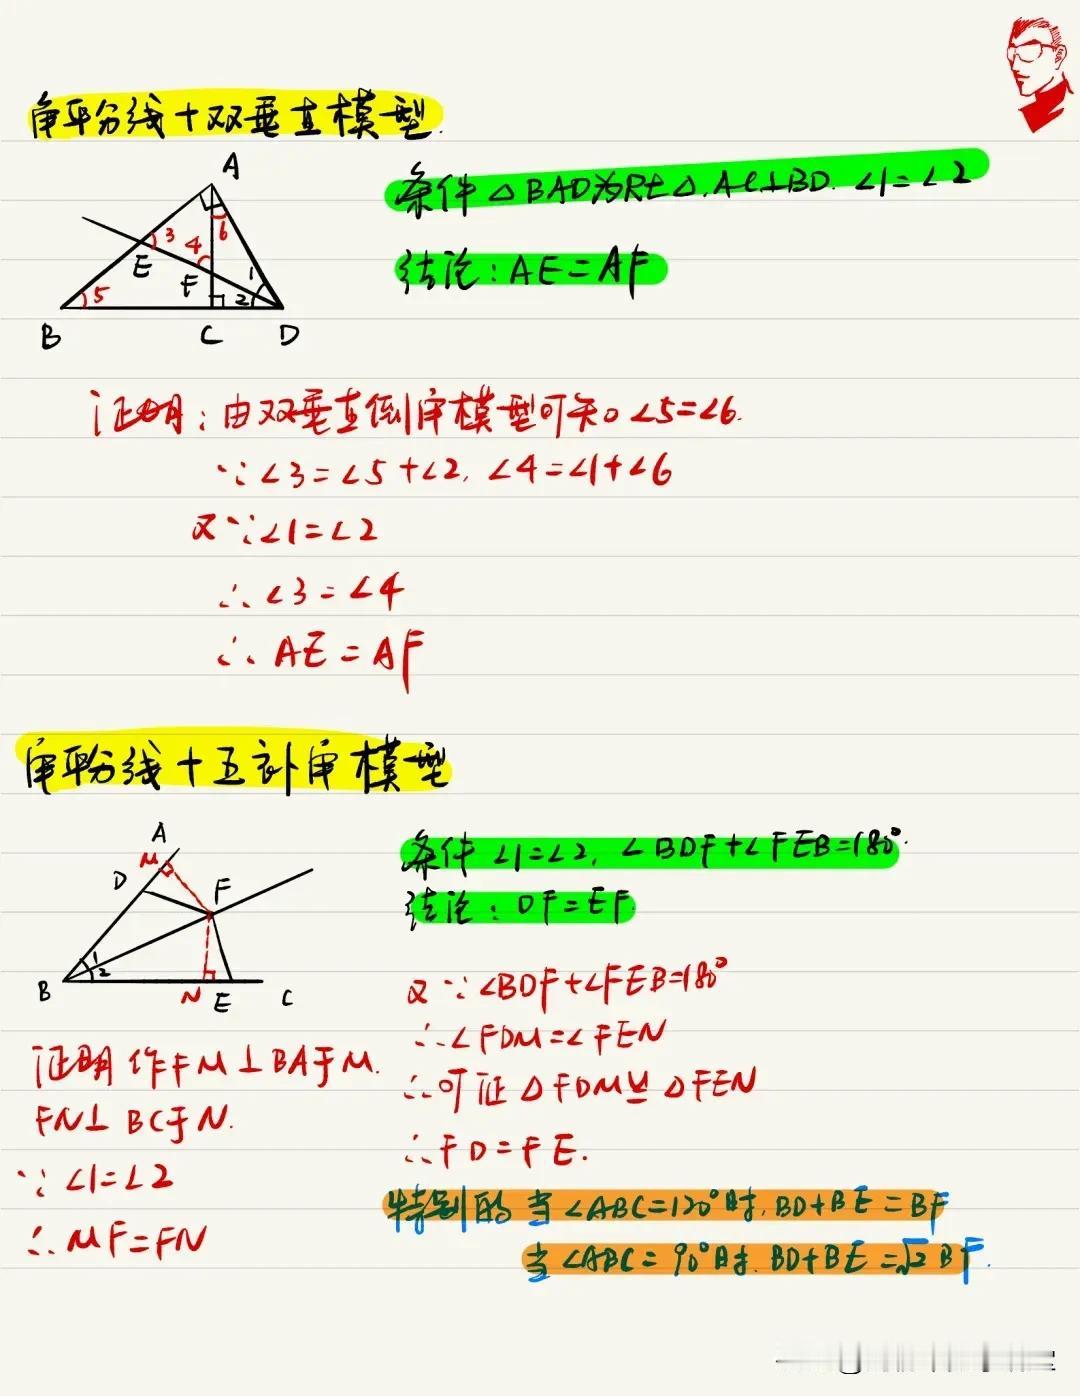 角平分线+双垂直模型.
A
3
6
4
E
F
1
5
2
B
C
D
条件 △BAD为Rt△.AC⊥BD.∠1=∠2
结论:AE=AF
证明:由双垂直倒角模型可知。∠5=∠6.
∵∠3=∠5+∠2,∠4=∠1+∠6
又∵∠1=∠2
∴∠3=∠4
∴AE=AF
角平分线+互补角模型
A
M
D
F
1
2
B
N
E
C
条件 ∠1=∠2, ∠BDF+∠FEB=180°.
结论:DF=EF
证明 作FM⊥BA于M.
FN⊥BC于N.
∵∠1=∠2
∴MF=FN
又∵∠BDF+∠FEB=180°
∴∠FDM=∠FEN
∴可证△FDM≌△FEN
∴FD=FE.
特别的 当∠ABC=120°时.BD+BE=BF
当∠ABC=90°时.BD+BE=√2BF.